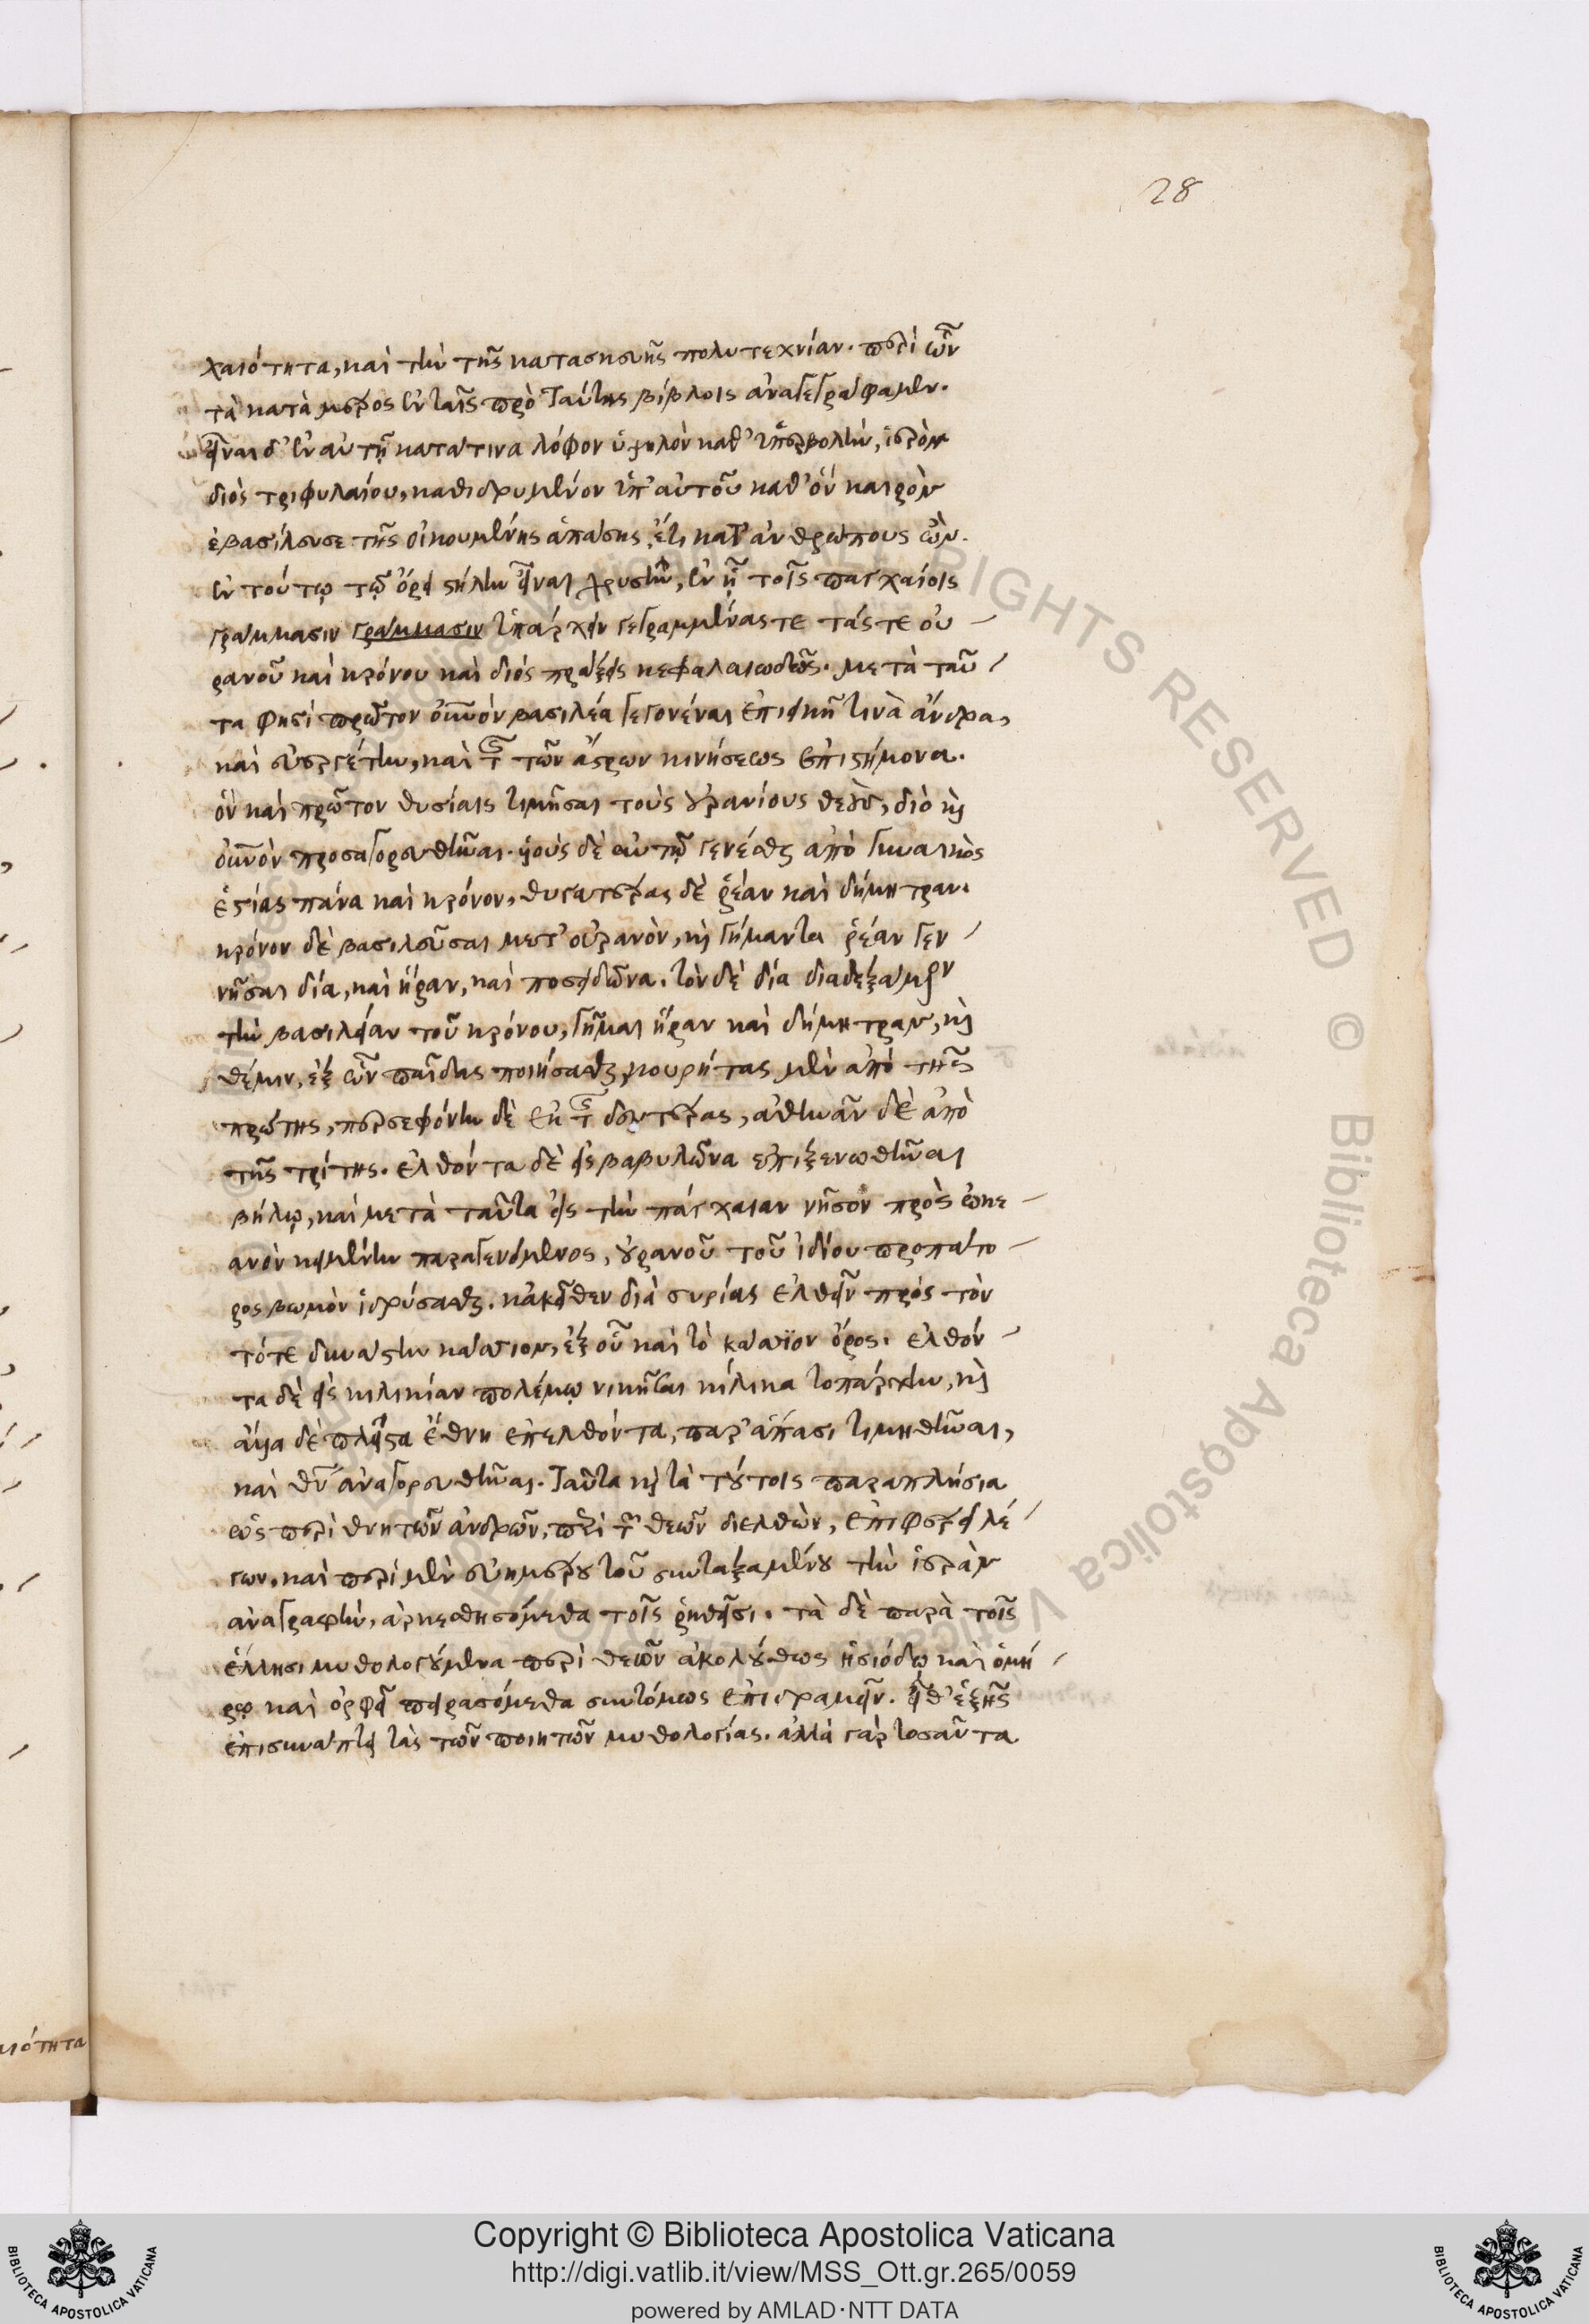 28
χαιότητα, καὶ τὴν τῆς κατασκευῆς πολυτεχνίαν. περὶ ὧν
τὰ κατὰ μέρος ἐν ταῖς πρὸ ταύτης βίβλοις ἀναγεγράφαμεν.
εἶναι δ' ἐν αὐτῇ κατά τινα λόφον ὑψηλὸν καθ' ὑπερβολὴν, ἱερὸν
διὸς τριφυλαίου, καθιδρυμένον ὑπ' αὐτοῦ καθ' ὃν καιρὸν
ἐβασίλευσε τῆς οἰκουμένης ἁπάσης, ἔτι κατ' ἀνθρώπους ὤν.
ἐν τούτῳ τῷ ὄρει στήλην εἶναι χρυσῆν, ἐν ᾗ τοῖς παγχαίοις
γράμμασιν γράμμασιν ὑπάρχειν γεγραμμένας τε τάς τε οὐ
ρανοῦ καὶ κρόνου καὶ διὸς πράξεις κεφαλαιωδῶς. μετὰ ταῦ
τα φησὶ πρῶτον οὐνὸν βασιλέα γεγονέναι ἐπιεικῆ τινὰ ἄνδρα,
καὶ εὐεργέτην, καὶ τῆς τῶν ἄστρων κινήσεως ἐπιστήμονα.
ὃν καὶ πρῶτον θυσίαις τιμῆσαι τοὺς οὐρανίους θεοὺς, διὸ καὶ
οὐνὸν προσαγορευθῆναι. υἱοὺς δὲ αὐτῷ γενέσθαι ἀπὸ γυναικὸς
ἑστίας πάνα καὶ κρόνον, θυγατέρας δὲ ῥέαν καὶ δήμητραν.
κρόνον δὲ βασιλεῦσαι μετ' οὐρανὸν, καὶ γήμαντα ῥέαν γεν
νῆσαι δία, καὶ ἥραν, καὶ ποσειδῶνα. τὸν δὲ δία διαδεξάμενον
τὴν βασιλείαν τοῦ κρόνου, γῆμαι ἥραν καὶ δήμητραν, καὶ
θέμιν, ἐξ ὧν παῖδας ποιήσασθαι, κουρήτας μὲν ἀπὸ τῆς
πρώτης, περσεφόνην δὲ ἐκ τῆς δευτέρας, ἀθηνᾶν δὲ ἀπὸ
τῆς τρίτης. ἐλθόντα δὲ εἰς βαβυλῶνα ἐπιξενωθῆναι
βήλῳ, καὶ μετὰ ταῦτα εἰς τὴν πάγχαιαν νῆσον πρὸς ὠκε
ανὸν κειμένην παραγενόμενος, οὐρανοῦ τοῦ ἰδίου προπάτο
ρος βωμὸν ἱδρύσασθαι. κἀκεῖθεν διὰ συρίας ἐλθεῖν πρὸς τὸν
τότε δυνάστην κάσιον, ἐξ οὗ καὶ τὸ κάσϊον ὄρος. ἐλθόν
τα δὲ εἰς κιλικίαν πολέμῳ νικῆσαι κίλικα τοπάρχην, καὶ
ἄλλα δὲ πλεῖστα ἔθνη ἐπελθόντα, παρ' ἅπασι τιμηθῆναι,
καὶ θν ἀναγορευθῆναι. ταῦτα καὶ τὰ τούτοις παραπλήσια
ὡς περὶ θνητῶν ἀνδρῶν, περὶ τῶν θεῶν διελθὼν, ἐπιφέρει λέ
γων, καὶ περὶ μὲν εὐημέρου τοῦ συνταξαμένου τὴν ἱερὰν
ἀναγραφὴν, ἀρκεσθησόμεθα τοῖς ῥηθεῖσι. τὰ δὲ παρὰ τοῖς
ἕλλησι μυθολογούμενα περὶ θεῶν ἀκολούθως ἡσιόδῳ καὶ ὁμή
ρῳ καὶ ὀρφεῖ πειρασόμεθα συντόμως ἐπιδραμεῖν. εἶθ' ἑξῆς
ἐπισυνάπτει τὰς τῶν ποιητῶν μυθολογίας. ἀλλὰ γὰρ τοσαῦτα
αιότητα
RIGHTS RESERVED © Biblioteca Apostolica Vaticana
Copyright © Biblioteca Apostolica Vaticana
http://digi.vatlib.it/view/MSS_Ott.gr.265/0059
powered by AMLAD·NTT DATA
BIBLIOTECA APOSTOLICA VATICANA
BIBLIOTECA APOSTOLICA VATICANA